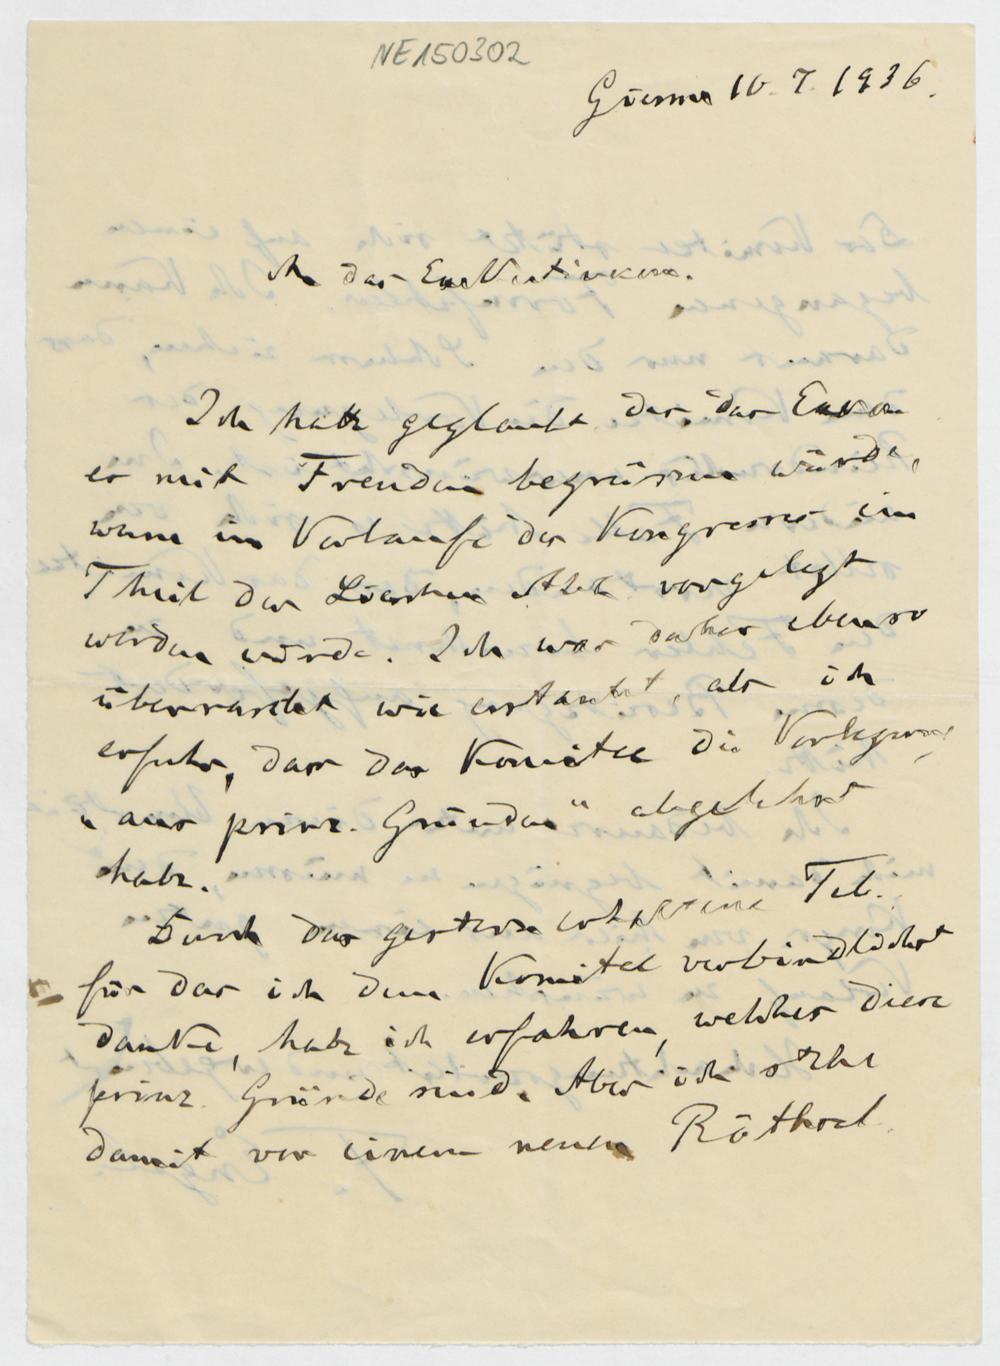 NE150302
10. 7. 1936.
An das Exekutivkom.
Ich hatte geglaubt, dass das Exekom
es mit Freuden begrüssen würde,
wenn im Verlaufe des Kongresses ein
Theil des Atlas vorgelegt
werden würde. Ich war daher ebenso
überrascht wie erstaunt, als ich
erfuhr, dass das Komitee die Vorlegung
"aus prinz. Gründen" abgelehnt
habe.
Durch das gestern erhaltene Tel.
für das ich dem Komitee verbindlichst
danke, habe ich erfahren, welches diese
prinz. Gründe sind. Aber ich stehe
damit vor einem neuen Räthsel.